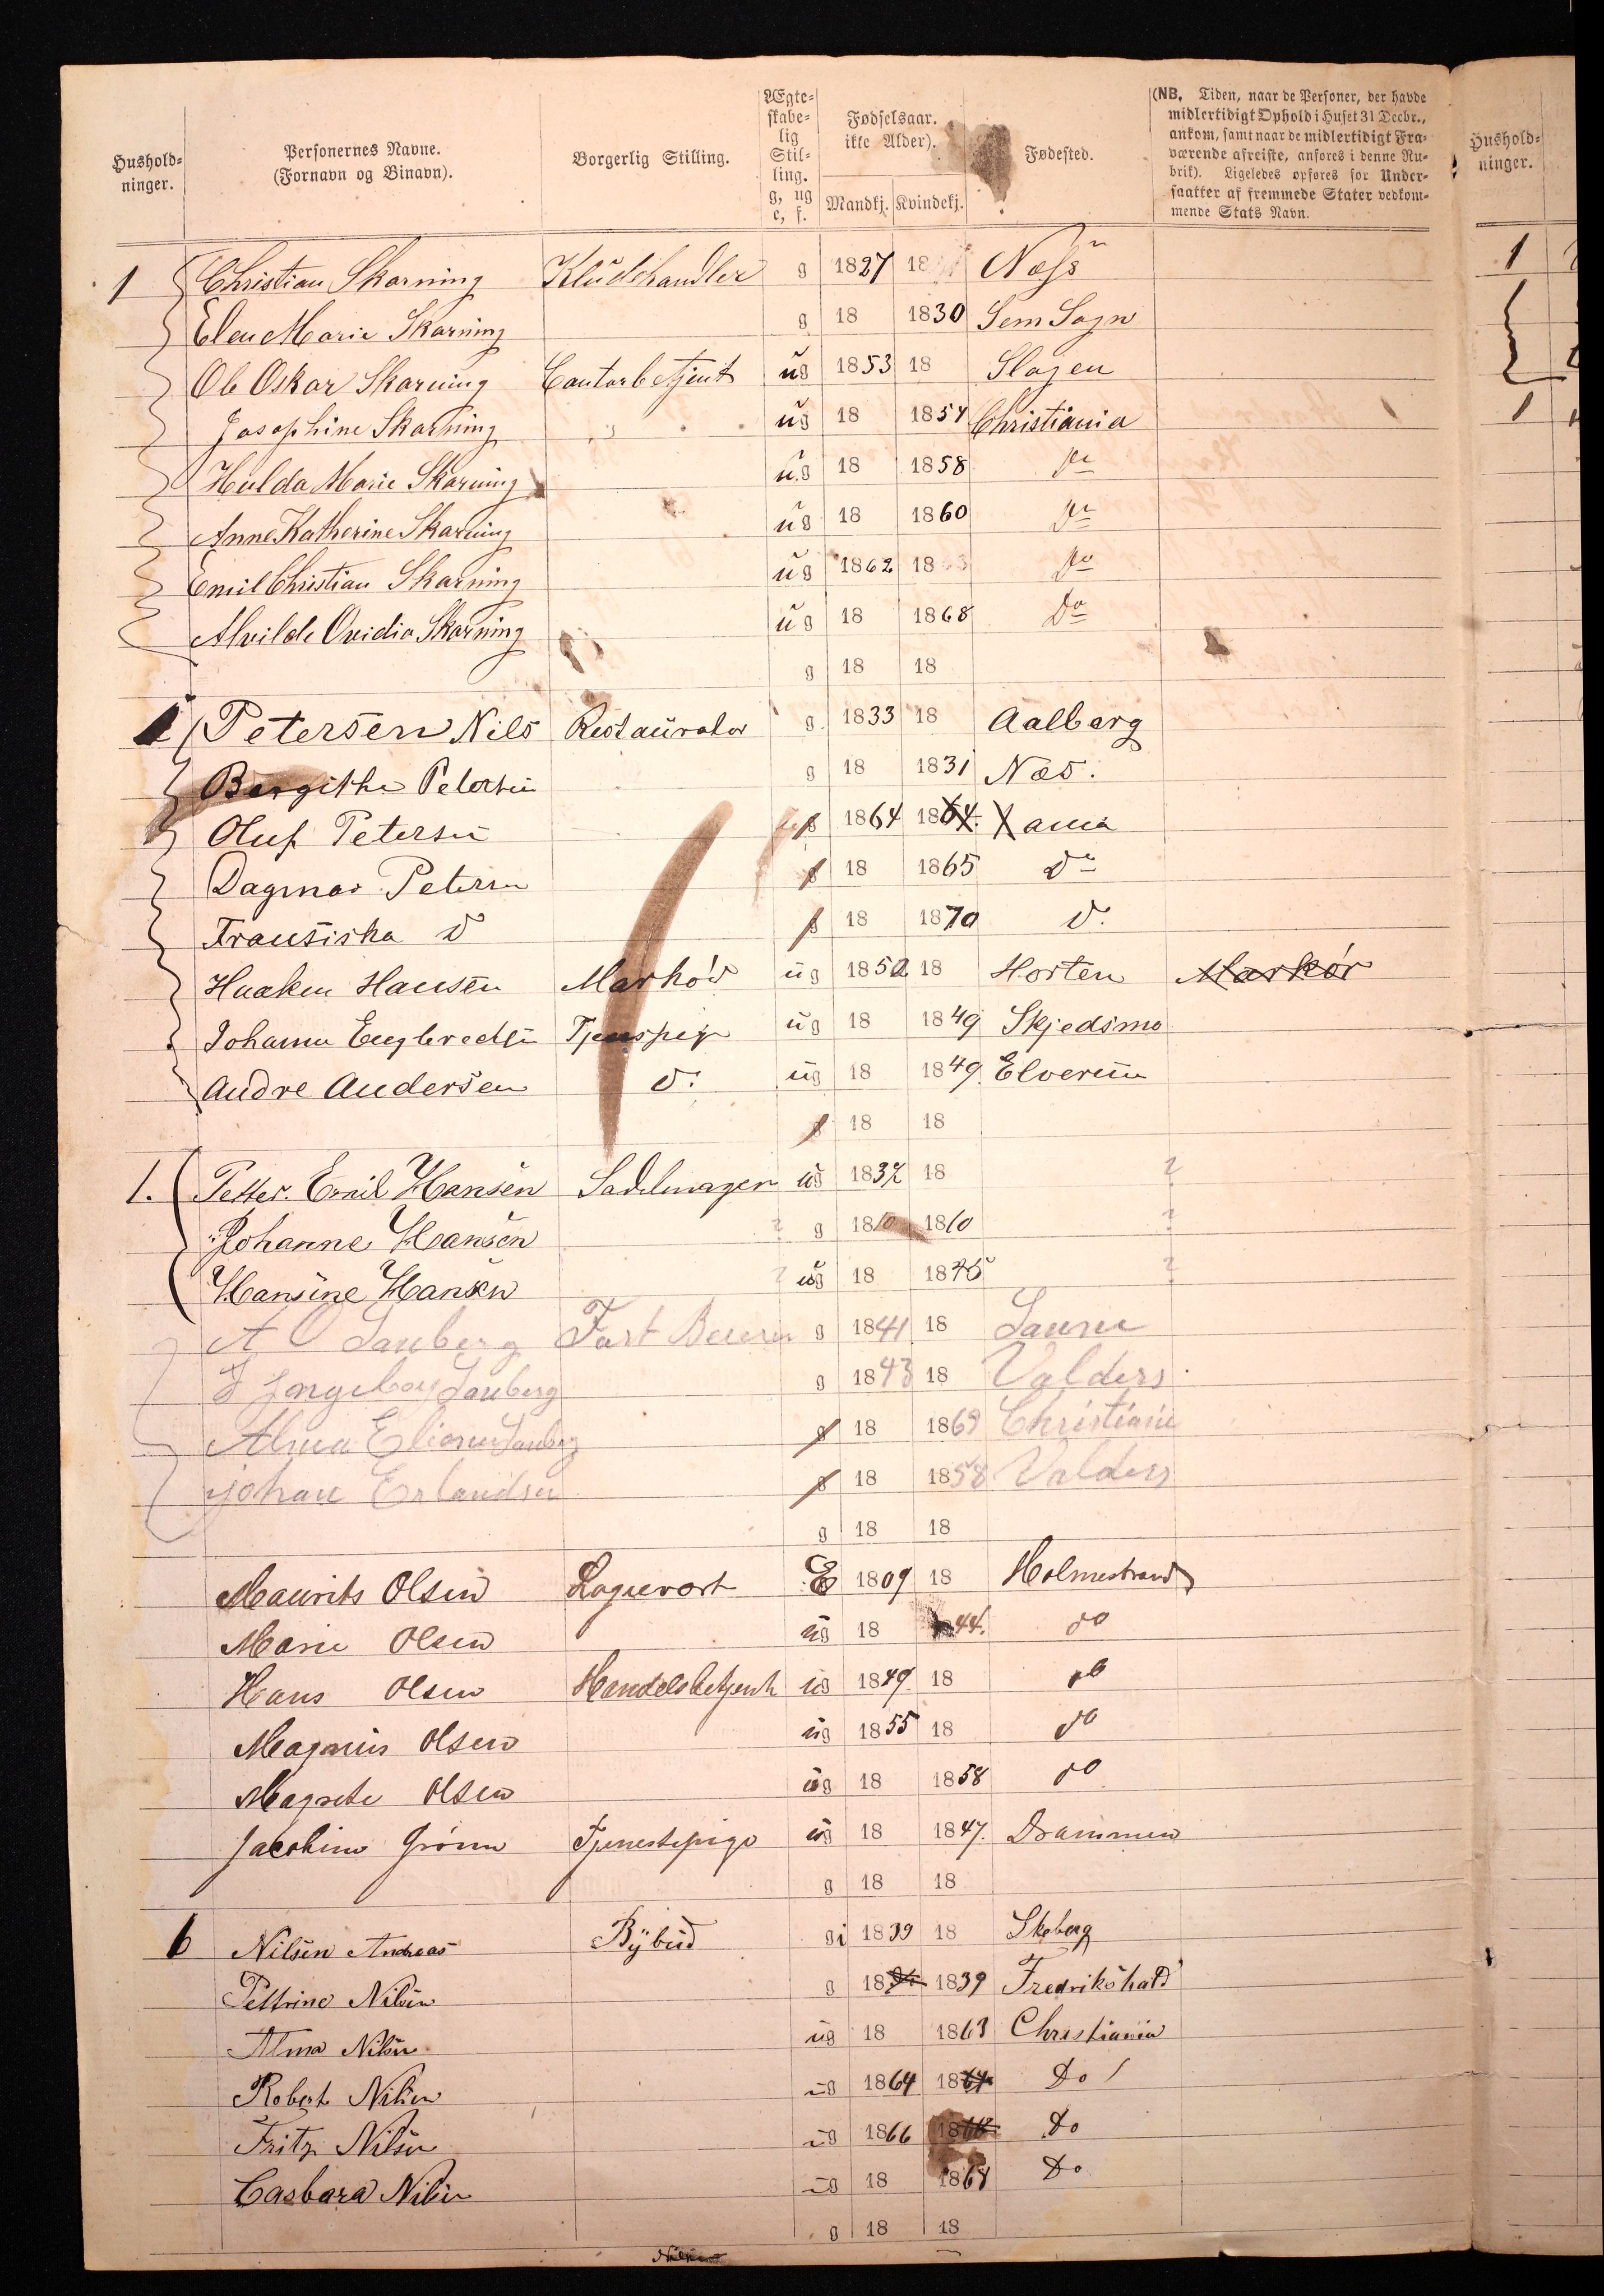 Hushold-
ninger.
Personernes Navne.
(Fornavn og Binavn).
Borgerlig Stilling.
Ægte-
skabe-
lig
Stil-
ling.
g, ug
e, f.
Fødselsaar.
ikke Alder).
Mandkj. Kvindekj.
Fødested.
(NB. Tiden, naar de Personer, der havde
midlertidigt Ophold i Huset 31 Decbr.,
ankom, samt naar de midlertidigt Fra-
værende afreiste, anføres i denne Ru-
brik). Ligeledes opføres for Under-
saatter af fremmede Stater vedkom-
mende Stats Navn.
Hushold-
ninger.
1 Christian Skarning Kludehandler g 1827 18 Næss 1
Elen Marie Skarning g 18 1830 Sem Sogn
Ole Oskar Skarning Contorbetjent ug 1853 18 Slagen
Josephine Skarning ug 18 1857 Christiania 1
Hulda Marie Skarning ug 18 1858 Do
Anne Katherine Skarning ug 18 1860 Do
Emil Christian Skarning ug 1862 18 Do
Alvilde Ovidia Skarning ug 18 1868 Do
g 18 18
1 Petersen Nils Restauratør g 1833 18 Aalborg
Bergithe Petersen g 18 1831 Næs.
Oluf Petersen g 1864 1864 Xania
Dagmar Petersen g 18 1865 Do
Fransiska D g 18 1870 D.
Haaken Hansen Markør ug 1852 18 Horten Markør
Johanna Englbredtsen Tjenspige ug 18 1849 Skjedsmo
Andre Andersen D: ug 18 1849 Elverum
g 18 18
1. Petter. Emil Hansen Sadelmager ug 1837 18 ?
Johanne Hansen ? g 1810 1810 ?
Hansine Hansen ? ug 18 1875 ?
A O Sanberg g 1841 18
Ingeborg Sanberg g 1843 18 Valders
Alma Sanberg g 18 1869 Christiania
Johan Erlandsen g 18 1858 Valders
g 18 18
Maurits Olsen E 1809 18 Holmestrand
Marie Olsen ug 18 44. do
Hans Olsen Handelsbetjent ug 1849 18 do
Magnus Olsen ug 1855 18 do
Magrete Olsen ug 18 1858 do
Jacobine Grønn Tjenestepige ug 18 1847. Drammen
g 18 18
6 Nilsen Andreas Bybud gi 1839 18 Skeberg
Pettrine Nilsen g 18 1839 Fredrikshald
Alma Nilsen ug 18 1863 Christiania
Robert Nilsen ug 1864 1864 Do
Fritz Nilsen ug 1866 18 Do
Casbara Nilsen ug 18 1868 Do
g 18 18